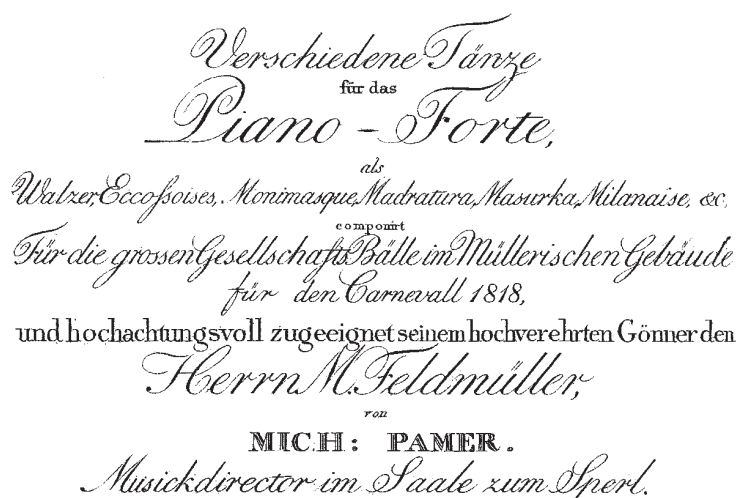 Verschiedene Tänze
für das
Piano-Forte,
als
Walzer, Eccossoises, Monimasque, Madratura, Masurka, Milanaise, &c,
componirt
Für die grossen Gesellschafts Bälle im Müllerischen Gebäude
für den Carnevall 1818,
und hochachtungsvoll zugeeignet seinem hochverehrten Gönner den
Herrn M. Feldmüller,
von
MICH: PAMER.
Musickdirector im Saale zum Sperl.